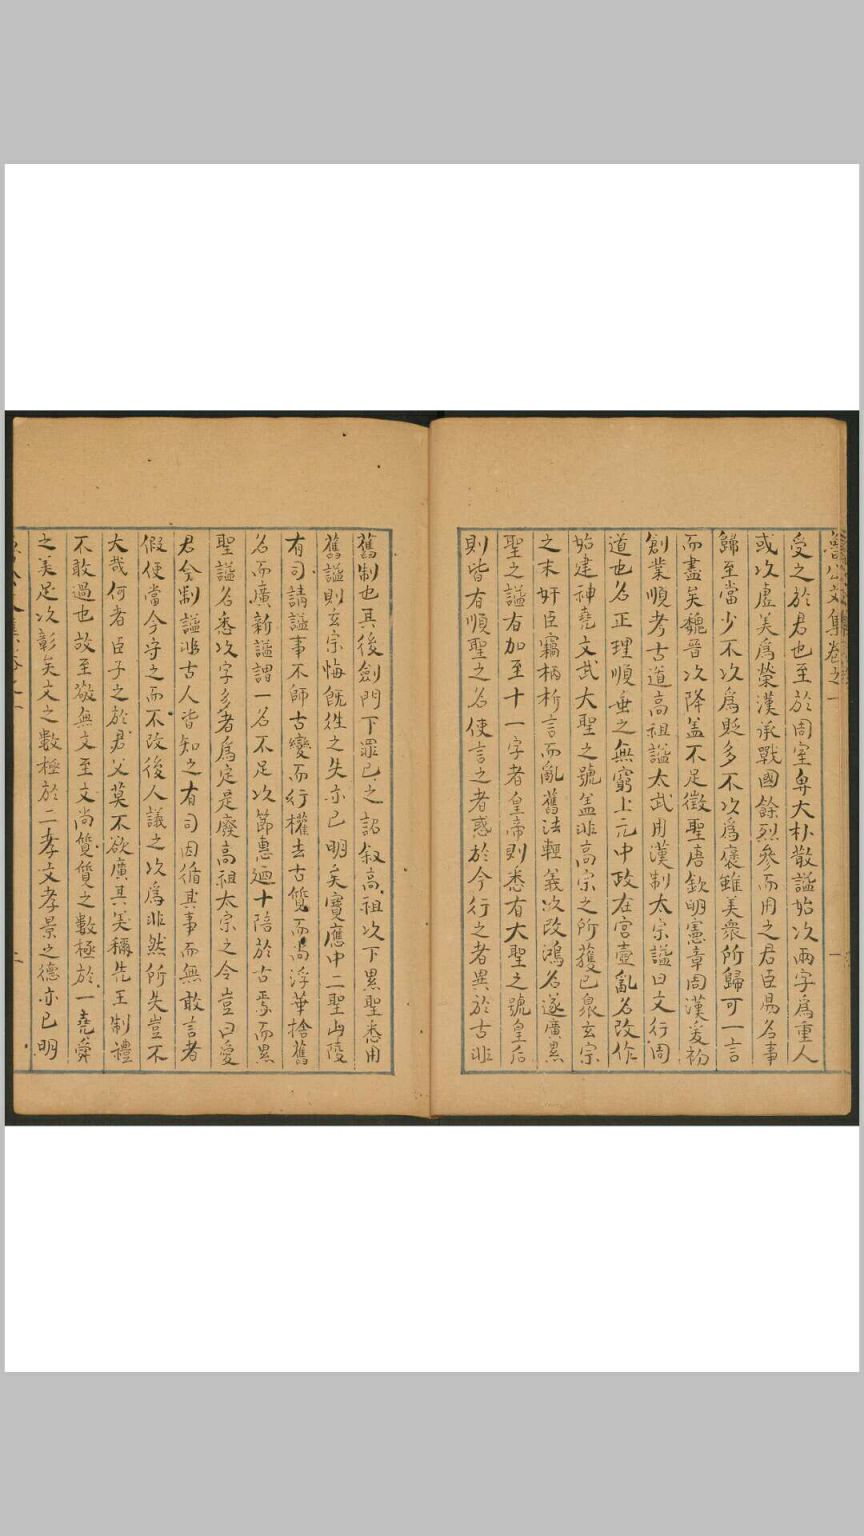 魯公文集卷之一
受之於君也至於周室卑大朴散謚始以兩字爲重人
或以虛美爲榮漢承戰國餘烈參而用之君臣易名事
歸至當少不以爲貶多不以爲褒雖美衆所歸可一言
而盡矣魏晉以降盖不足徵聖唐欽明憲章周漢爰初
創業順考古道高祖謚太武用漢制太宗謚曰文行周
道也名正理順垂之無窮上元中政在宮壼亂名改作
始建神堯文武大聖之號盖非高宗之所獲已泉玄宗
之末奸臣竊柄析言而亂舊法輕義以改鴻名遂廣累
聖之謚有加至十一字者皇帝則悉有大聖之號皇后
則皆有順聖之名使言之者惑於今行之者異於古非
舊制也其後劍門下罪已之詔叙高祖以下累聖悉用
舊謚則玄宗悔旣徃之失亦已明矣寶應中二聖山陵
有司請謚事不師古變而行權去古質而尚浮華捨舊
名而廣新謚謂一名不足以節惠廻十陪於古焉而累
聖謚名悉以字多者爲定是廢高祖太宗之令豈曰愛
君今制謚非古人皆知之有司因循其事而無敢言者
假使當今守之而不改後人議之以爲非然所失豈不
大哉何者臣子之於君父莫不欲廣其美稱先王制禮
不敢過也故至敬無文至文尚質質之數極於一堯舜
之美足以彰矣文之數極於二孝文孝景之德亦已明